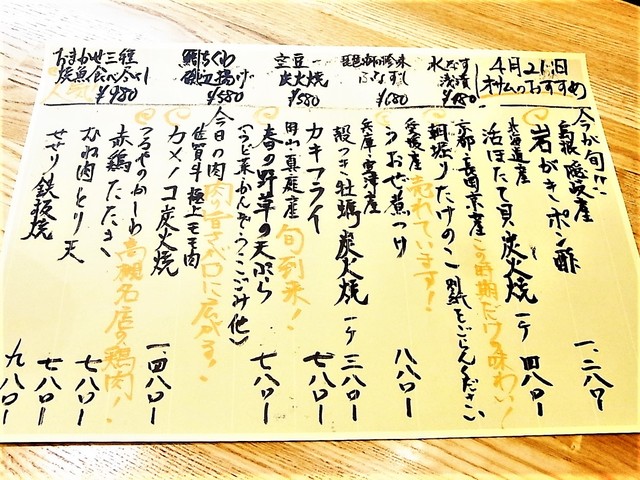 4月21日
オサムのおすすめ
水なす
浅漬
¥480
琵琶湖の勝ち
ふなずし
¥680
空豆
炭火焼
¥580
鯛ちくわ
磯辺揚げ
¥580
おまかせ三種
焼魚食べ合わせ
¥980
今が旬!!
島根・隠岐産
岩がきポン酢 一、二八〇ー
北海道産
活ほたて貝炭火焼 一ケ 四八〇ー
この時期だけの味わい!
京都・長岡京産
朝堀りたけのこ 別紙をごらんください
売れています!
愛媛産
うおぜ煮つけ 八八〇ー
兵庫・室津産
殻つき牡蠣炭火焼 一ケ 三八〇ー
カキフライ 七八〇ー
岡山・真庭産 旬到来!
春の野草の天ぷら 七八〇ー
(うど菜・かんぞう・こごみ他)
今日の肉 肉の旨さが口に広がる!
佐賀牛 極上モモ肉
カメノコ炭火焼 一、四八〇ー
高瀬名店の鶏肉!
赤鶏たたき 七八〇ー
むね肉とり天 七八〇ー
せせり鉄板焼 九八〇ー